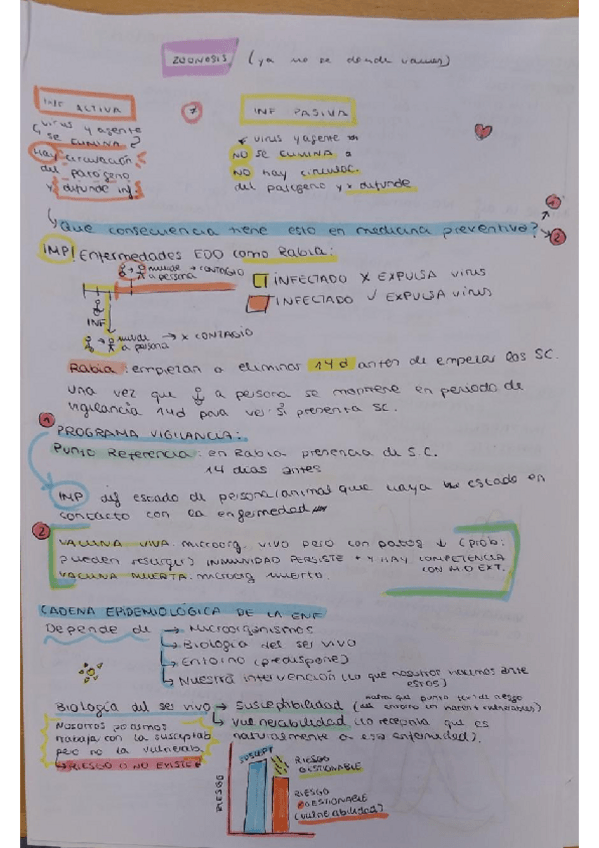 ZOONOSIS (ya no se donde vamos)
INF ACTIVA
INF PASIVA
virus y agente
SE ELIMINA
HAY circulación
del patógeno
y difunde inf
virus y agente
NO SE ELIMINA
NO HAY circulac.
del patógeno y x difunde
¿Que consecuencia tiene esto en medicina preventiva? 1
2
IMP! Enfermedades EDO como Rabia:
muerde → CONTAGIO
a persona
INFECTADO X EXPULSA VIRUS
INFECTADO ✓ EXPULSA VIRUS
INF
muerde → X CONTAGIO
a persona
Rabia: empiezan a eliminar 14d antes de empezar los SC.
una vez que a persona se mantiene en periodo de
vigilancia 14d para ver si presenta SC.
1
PROGRAMA VIGILANCIA:
Punto Referencia: en Rabia presencia de S.C.
14 días antes
IMP dif estado de persona/animal que haya estado en
contacto con la enfermedad
2
VACUNA VIVA: microorg. vivo pero con patog ↓ (prob:
pueden resurgir) INMUNIDAD PERSISTE + Y HAY COMPETENCIA
CON M.O EXT.
VACUNA MUERTA: microorg muerto.
CADENA EPIDEMIOLÓGICA DE LA ENF
Depende de → Microorganismos
→ Biología del ser vivo
→ Entorno (predispone)
→ Nuestra intervención (lo que nosotros hacemos ante
estos)
Biología del ser vivo → Susceptibilidad
→ vulnerabilidad (lo receptivo que es
naturalmente a esa enfermedad).
Nosotros podemos
trabajar con la susceptab
pero no la vulnerab
→ RIESGO 0 NO EXISTE
RIESGO
SUSCEPT
RIESGO
GESTIONABLE
RIESGO
GESTIONABLE
(vulnerabilidad)